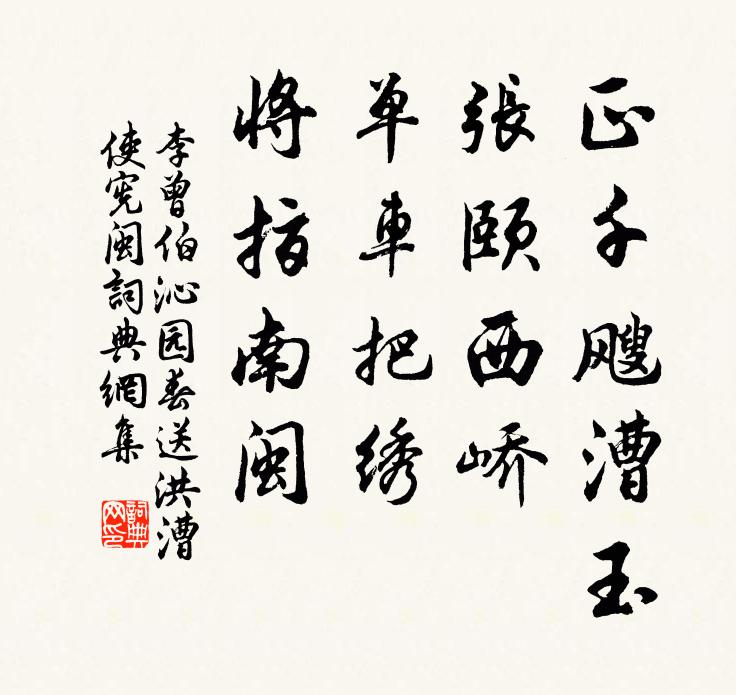 正千颼漕玉
張頤西峤
单車把绣
將指南闽
李曾伯沁园春送洪漕
使宪闽詞典網集
詞典网印